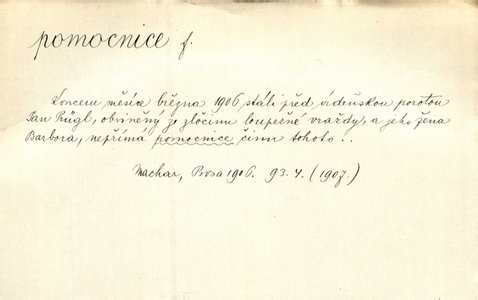 pomocnice f.
Koncem měsíce března 1906 stáli před vídeňskou porotou
Jan Prügl, obviněný ze zločinu loupežné vraždy, a jeho žena
Barbora, nepřímá pomocnice činu tohoto..
Machar, Prosa 1906. 93. 4. (1907.)